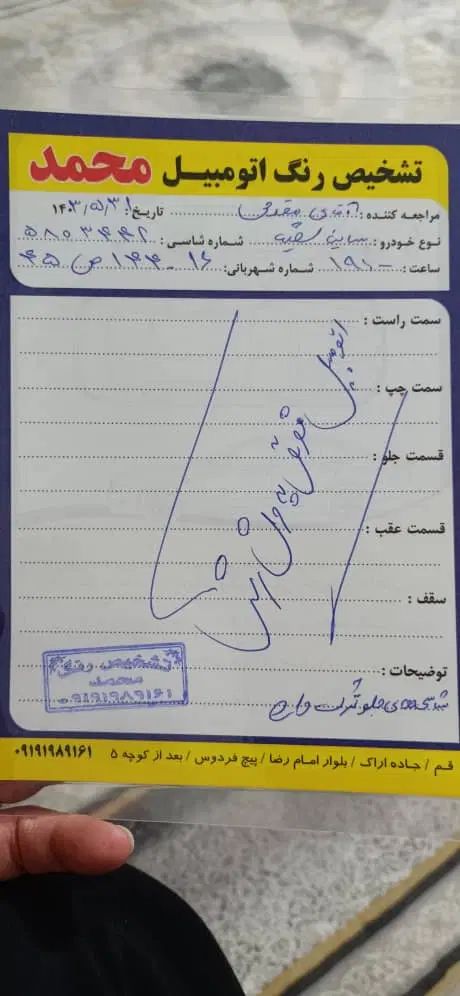 تشخیص رنگ اتومبیل محمد
مراجعه کننده: آقای مقدمی تاریخ: ۱۴۰۳/۵/۳۱
نوع خودرو: ساینا سفید شماره شاسی: ۵۸۰۳۴۴۲
ساعت: ۱۹:۰۰ شماره شهربانی: ۱۶ - ۱۴۴ ص ۴۵
سمت راست:
سمت چپ:
قسمت جلو:
قسمت عقب:
سقف:
اتومبیل فوق
توضیحات:
جلو ترک
تشخیص رنگ
محمد
۰۹۱۹۱۹۸۹۱۶۱
قم / جاده اراک / بلوار امام رضا / پیچ فردوس / بعد از کوچه ۵ ۰۹۱۹۱۹۸۹۱۶۱